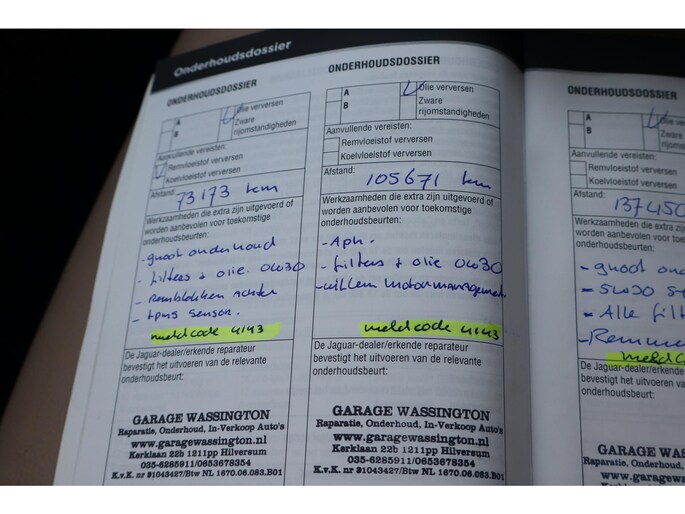 Onderhoudsdossier
ONDERHOUDSDOSSIER
A
B
Olie verversen
Zware
rijomstandigheden
Aanvullende vereisten:
Remvloeistof verversen
Koelvloeistof verversen
Afstand: 73173 km
Werkzaamheden die extra zijn uitgevoerd of
worden aanbevolen voor toekomstige
onderhoudsbeurten:
- groot onderhoud
- filters + olie 0W30
- Remblokken achter
- tpms sensor.
meldcode 4143
De Jaguar-dealer/erkende reparateur
bevestigt het uitvoeren van de relevante
onderhoudsbeurt:
GARAGE WASSINGTON
Raparatie, Onderhoud, In-Verkoop Auto's
www.garagewassington.nl
Kerklaan 22b 1211pp Hilversum
035-6285911/0653678354
K.v.K. nr 31043427/Btw NL 1670.06.083.B01
ONDERHOUDSDOSSIER
A
B
Olie verversen
Zware
rijomstandigheden
Aanvullende vereisten:
Remvloeistof verversen
Koelvloeistof verversen
Afstand: 105671 km
Werkzaamheden die extra zijn uitgevoerd of
worden aanbevolen voor toekomstige
onderhoudsbeurten:
- Apk.
- filters + olie 0W30
motormanagement
meldcode 4143
De Jaguar-dealer/erkende reparateur
bevestigt het uitvoeren van de relevante
onderhoudsbeurt:
GARAGE WASSINGTON
Raparatie, Onderhoud, In-Verkoop Auto's
www.garagewassington.nl
Kerklaan 22b 1211pp Hilversum
035-6285911/0653678354
K.v.K. nr 31043427/Btw NL 1670.06.083.B01
ONDERHOUDSDOSSIER
A
B
Zware
rijomstandig
Aanvullende vereisten:
Remvloeistof verversen
Koelvloeistof verversen
Afstand: 137450
Werkzaamheden die extra zijn
worden aanbevolen voor toe
onderhoudsbeurten:
- groot ond
- 5W30
- Alle filt
- Remm
meldc
De Jaguar-dealer/erken
bevestigt het uitvoeren
onderhoudsbeurt:
GARAGE WAS
Raparatie, Onderhoud,
www.garage
Kerklaan 22b
035-62859
K.v.K. nr 31043427/